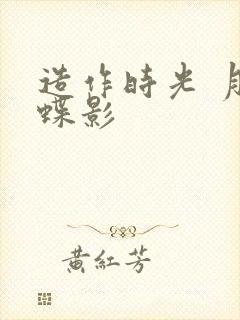 造作時光
蝶影
黃紅芳